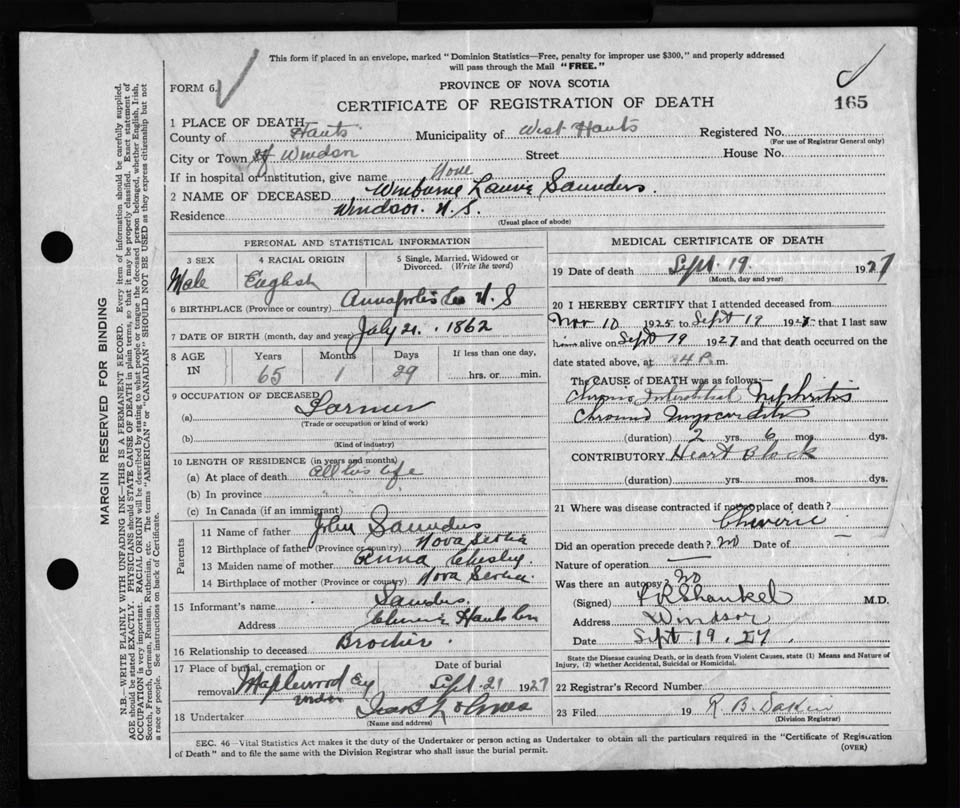 This form if placed in an envelope, marked "Dominion Statistics—Free, penalty for improper use $300," and properly addressed
will pass through the Mail "FREE."
FORM 6.
PROVINCE OF NOVA SCOTIA
CERTIFICATE OF REGISTRATION OF DEATH
165
1 PLACE OF DEATH
County of Hants Municipality of West Hants Registered No.
(For use of Registrar General only)
City or Town of Windsor Street House No.
If in hospital or institution, give name Home
2 NAME OF DECEASED Laurie Saunders.
Residence Windsor. N.S.
(Usual place of abode)
PERSONAL AND STATISTICAL INFORMATION
3 SEX 4 RACIAL ORIGIN 5 Single, Married, Widowed or
Divorced. (Write the word)
Male English
6 BIRTHPLACE (Province or country) Annapolis Co N.S
7 DATE OF BIRTH (month, day and year) July 21. 1862
8 AGE IN Years Months Days If less than one day,
65 1 29 hrs. or min.
9 OCCUPATION OF DECEASED
(a) Farmer
(Trade or occupation or kind of work)
(b)
(Kind of industry)
10 LENGTH OF RESIDENCE (in years and months)
(a) At place of death all his life
(b) In province " " "
(c) In Canada (if an immigrant)
Parents
11 Name of father John Saunders
12 Birthplace of father (Province or country) Nova Scotia
13 Maiden name of mother Anna Chesley
14 Birthplace of mother (Province or country) Nova Scotia
15 Informant's name Saunders.
Address Hants Co
16 Relationship to deceased Brother.
17 Place of burial, cremation or Date of burial
removal Maplewood Cy Sept. 21 1927
Windsor
18 Undertaker Holmes
(Name and address)
MEDICAL CERTIFICATE OF DEATH
19 Date of death Sept. 19. 1927
(Month, day and year)
20 I HEREBY CERTIFY that I attended deceased from
Nov 10 1925 to Sept 19 1927 that I last saw
him alive on Sept 19 1927 and that death occurred on the
date stated above, at m.
The CAUSE OF DEATH was as follows:
Chronic Interstitial Nephritis
Chronic Myocarditis
(duration) 2 yrs. 6 mos. dys.
CONTRIBUTORY Heart Block
(duration) yrs. mos. dys.
21 Where was disease contracted if not at place of death?
Cheverie
Did an operation precede death? No Date of
Nature of operation —
Was there an autopsy? No
(Signed) Shankel M.D.
Address Windsor
Date Sept 19. 27.
State the Disease causing Death, or in death from Violent Causes, state (1) Means and Nature of
Injury, (2) whether Accidental, Suicidal or Homicidal.
22 Registrar's Record Number
23 Filed 19 R. B. Dakin
(Division Registrar)
SEC. 46—Vital Statistics Act makes it the duty of the Undertaker or person acting as Undertaker to obtain all the particulars required in the "Certificate of Registration
of Death" and to file the same with the Division Registrar who shall issue the burial permit.
(OVER)
MARGIN RESERVED FOR BINDING
N.B.—WRITE PLAINLY WITH UNFADING INK—THIS IS A PERMANENT RECORD. Every item of information should be carefully supplied.
AGE should be stated EXACTLY. PHYSICIANS should STATE CAUSE OF DEATH in plain terms, so that it may be properly classified. Exact statement of
OCCUPATION is very important. RACIAL ORIGIN will be described by stating to what people or tongue the deceased person belonged, whether English, Irish,
Scotch, French, German, Russian, Ruthenian, etc. The terms "AMERICAN" or "CANADIAN" SHOULD NOT BE USED as they express citizenship but not
a race or people. See instructions on back of Certificate.